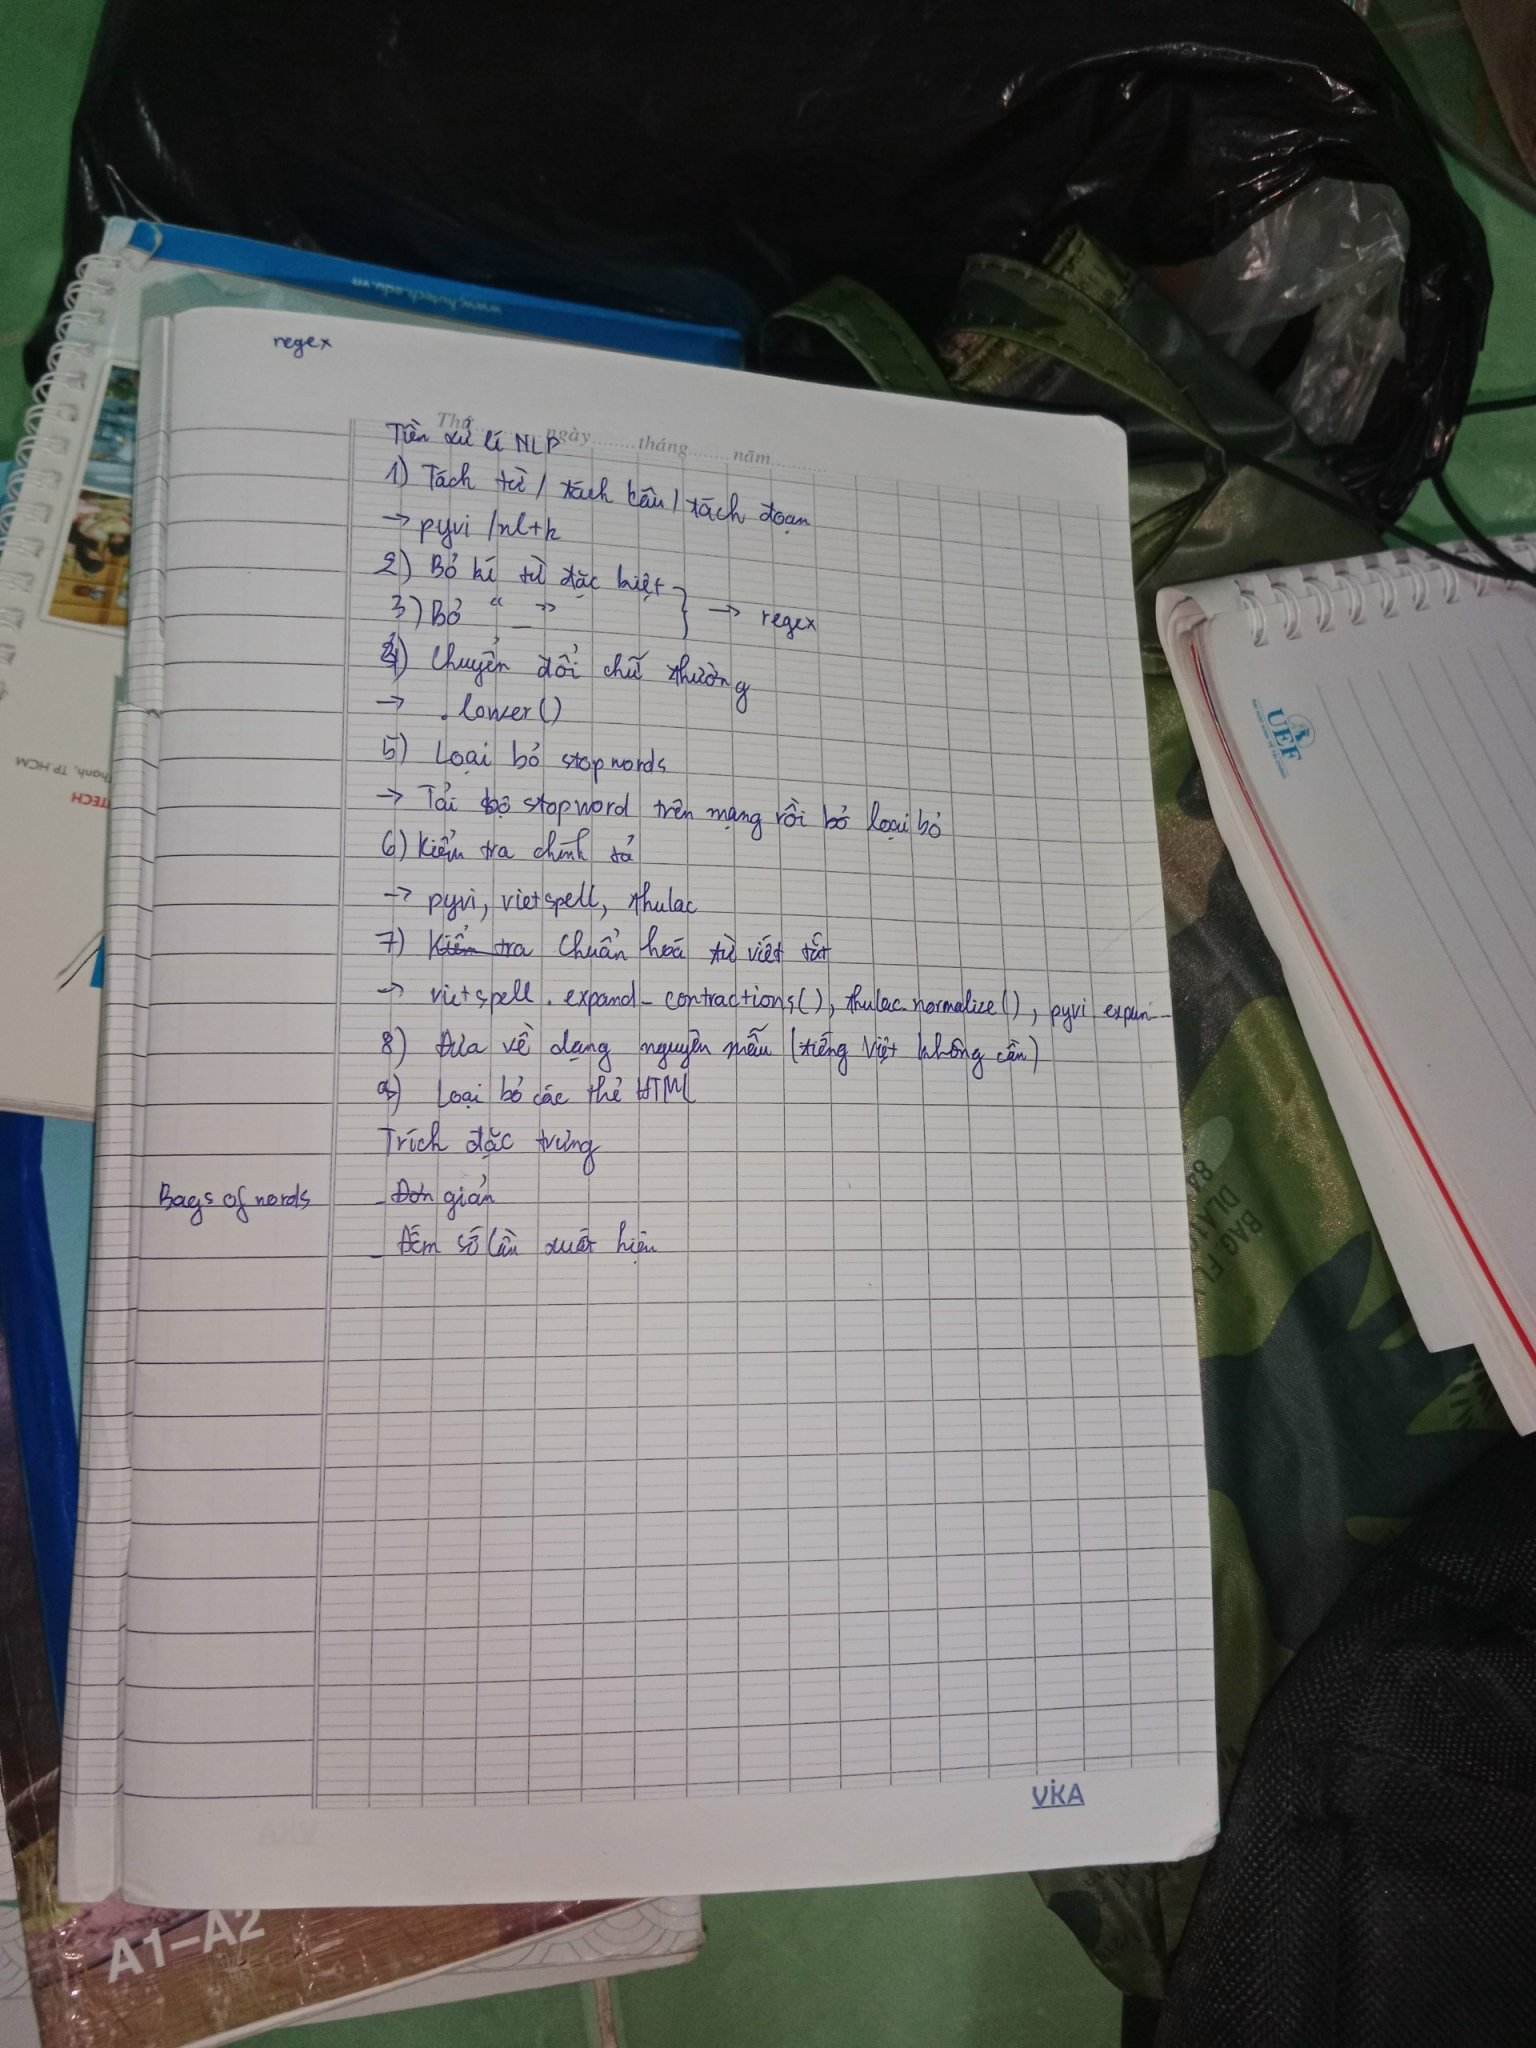 www.hutech.edu.vn
regex
Thứ ngày ........ tháng ........ năm ..........
Tiền xử lí NLP
1) Tách từ / tách câu / tách đoạn
→ pyvi / nltk
2) Bỏ kí tự đặc biệt
3) Bỏ “ _ ” → regex
4) Chuyển đổi chữ thường
→ .lower()
5) Loại bỏ stopwords
→ Tải bộ stopword trên mạng rồi bỏ loại bỏ
6) Kiểm tra chính tả
→ pyvi, vietspell, thulac
7) Kiểm tra Chuẩn hoá từ viết tắt
→ vietspell.expand_contractions(), thulac.normalize(), pyvi
8) Đưa về dạng nguyên mẫu (tiếng Việt không cần)
9) Loại bỏ các thẻ HTML
Trích đặc trưng
Bags of words - Đơn giản
- Đếm số lần xuất hiện
VIKA
UEF
A1-A2
TP.HCM
BAG FL